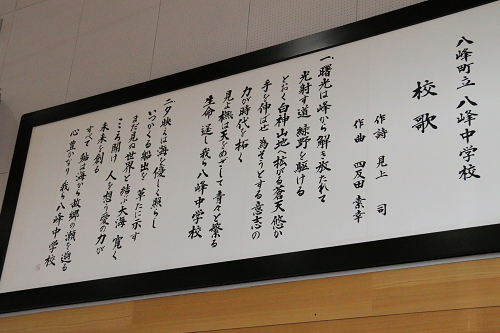 八峰町立 八峰中学校
校歌
作詩 見上 司
作曲 四反田 素幸
一、曙光は峰から解き放たれて
光射す道 緑野を駆ける
とおく白神山地へ拡がる蒼天悠か
手を伸ばせ 為そうとする意志の
力が時代を拓く
見よ樅は天をめざして青々と繁る
生命 逞し我ら八峰中学校
二、夕映えは海を優しく照らし
いつかくる船出を 草たに示す
まだ見ぬ世界を結ぶ大海 寛く
こころ開け 人を想う愛の力が
未来を創る
すべて 鮭は海から故郷の瀬を遡る
心豊かなり 我ら八峰中学校